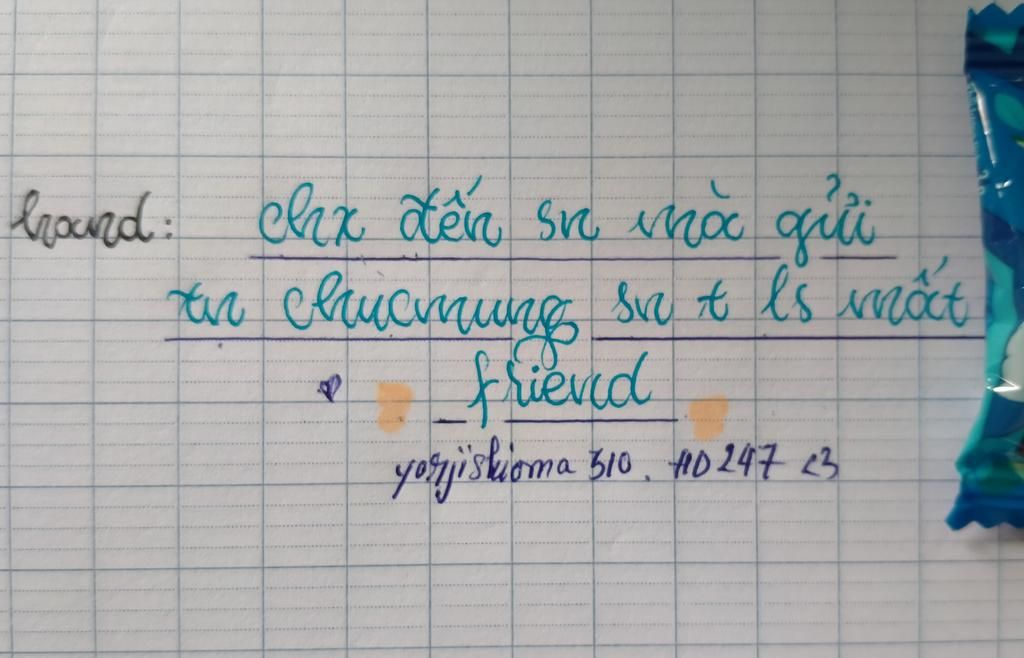 hand: chx đến sn mà gửi
tn chucmung sn t ls mất
friend
yorjishioma 310. HD 247 <3